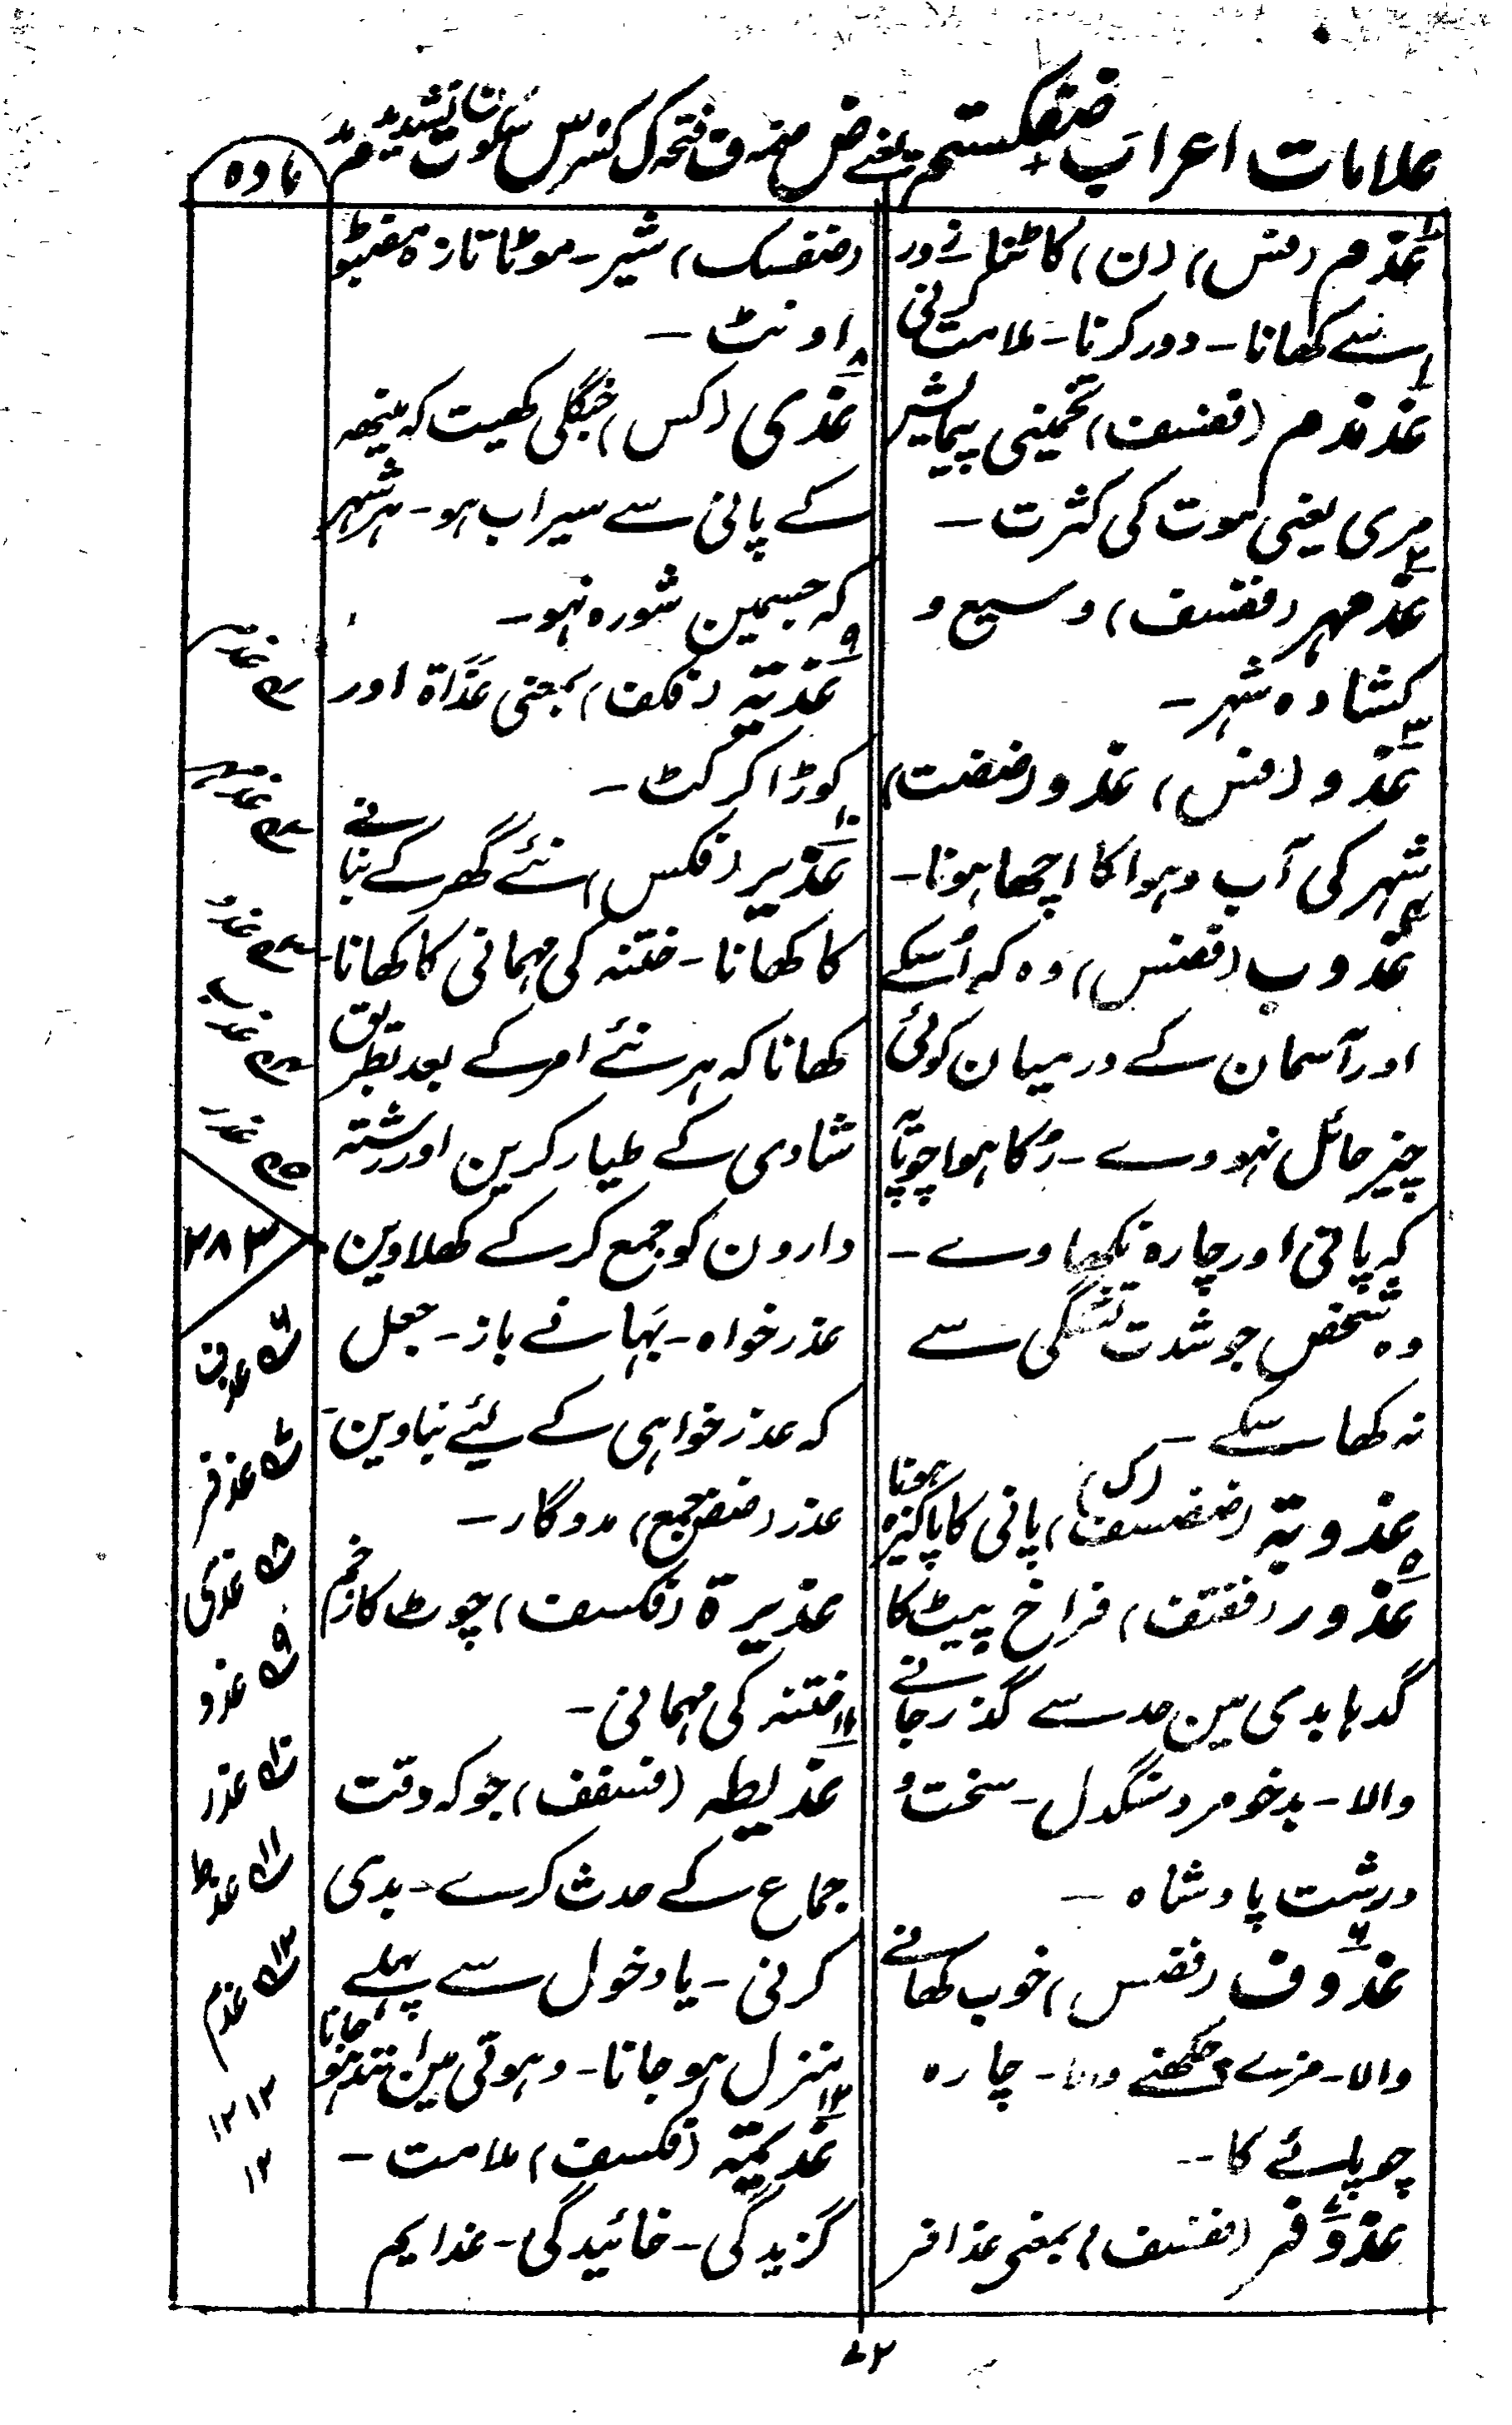 علامات اعراب ضفکستم یعنے ض ضمہ ف فتحہ ک کسر س سکون ت تشدید م مد
مادہ
عذم (فس) (ن) کاٹنا زور
سے کھانا۔ دور کرنا۔ ملامت کرنی
عذمذم (فسف) تخمینی پیمایش
مری یعنی موت کی کثرت۔
عذمہر (ففسف) وسیع و
کشادہ شہر۔
عذو (فس) عذو (ضفت)
شہر کی آب و ہوا کا اچھا ہونا۔
عذوب (فضس) وہ کہ اُسکے
اور آسمان کے درمیان کوئی
چیز حائل نہووے۔ رُکا ہوا چوپایہ
کہ پانی اور چارہ نکھاوے۔
وہ شخص جو شدت تشنگی سے
نہ کھا سکے۔
عذوبۃ (ضضسف) (ک) پانی کا پاکیزہ ہونا
عذور (ففتف) فراخ پیٹ کا
گدہا بدی مین حد سے گذر جانے
والا۔ بدخو مرد سنگدل۔ سخت و
درشت پادشاہ۔
عذوف (فضس) خوب کھانے
والا۔ مزے چکھنے والا۔ چارہ
چوپائے کا۔
عذوفر (ففسف) بمعنی عذافر
(ضفسک) شیر۔ موٹا تازہ مضبو
اونٹ۔
عذی (کس) جنگلی کھیت کہ مینھہ
کے پانی سے سیراب ہو۔ ہر شہر
کہ جسمین شورہ نہو۔
عذیۃ (فکف) بمعنی عذاۃ اور
کوڑا کرکٹ۔
عذیر (فکس) نئے گھر کے بنانے
کا کھانا۔ ختنہ کی مہمانی کا کھانا۔
کھانا کہ ہر نئے امر کے بعد بطریق
شادی کے طیار کرین اور رشتہ
دارون کو جمع کر کے کھلاوین
عذر خواہ۔ بہانے باز۔ جعل
کہ عذر خواہی کے لئے بناوین۔
عذر (ضض جمع) مددگار۔
عذیرۃ (فکسف) چوٹ کا زخم
ختنہ کی مہمانی۔
عذیطہ (فسفف) جو کہ وقت
جماع کے حدث کرے۔ بدی
کرنی۔ یا دخول سے پہلے
منزل ہو جانا۔
عذیمۃ (فکسف) ملامت۔
گزیدگی۔ خائیدگی۔ عذایم
۲۸۳
عذفر
عذی
عذو
عذر
عذط
عذم
۷۲